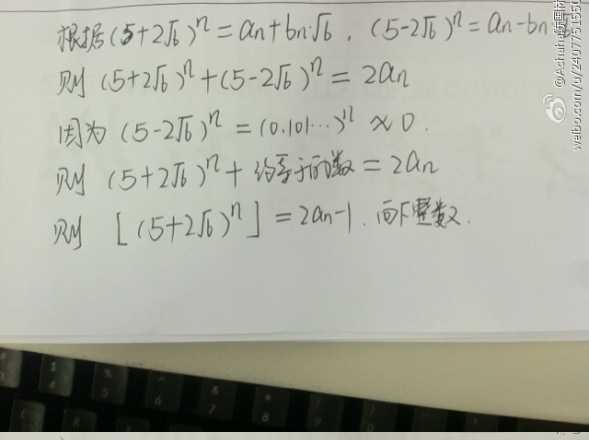 根据(5+2√6)^n=an+bn√6, (5-2√6)^n=an-bn√6
则 (5+2√6)^n+(5-2√6)^n=2an
因为 (5-2√6)^n=(0.101…)^n≈0.
则 (5+2√6)^n+约等于0的数=2an
则 [(5+2√6)^n]=2an-1.
weibo.com/u/2407751550